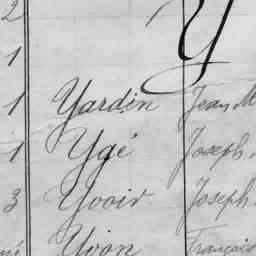 2
Y
1
1 Yardin Jean M
1 Ygé Joseph
3 Yvoir Joseph
Yvon François